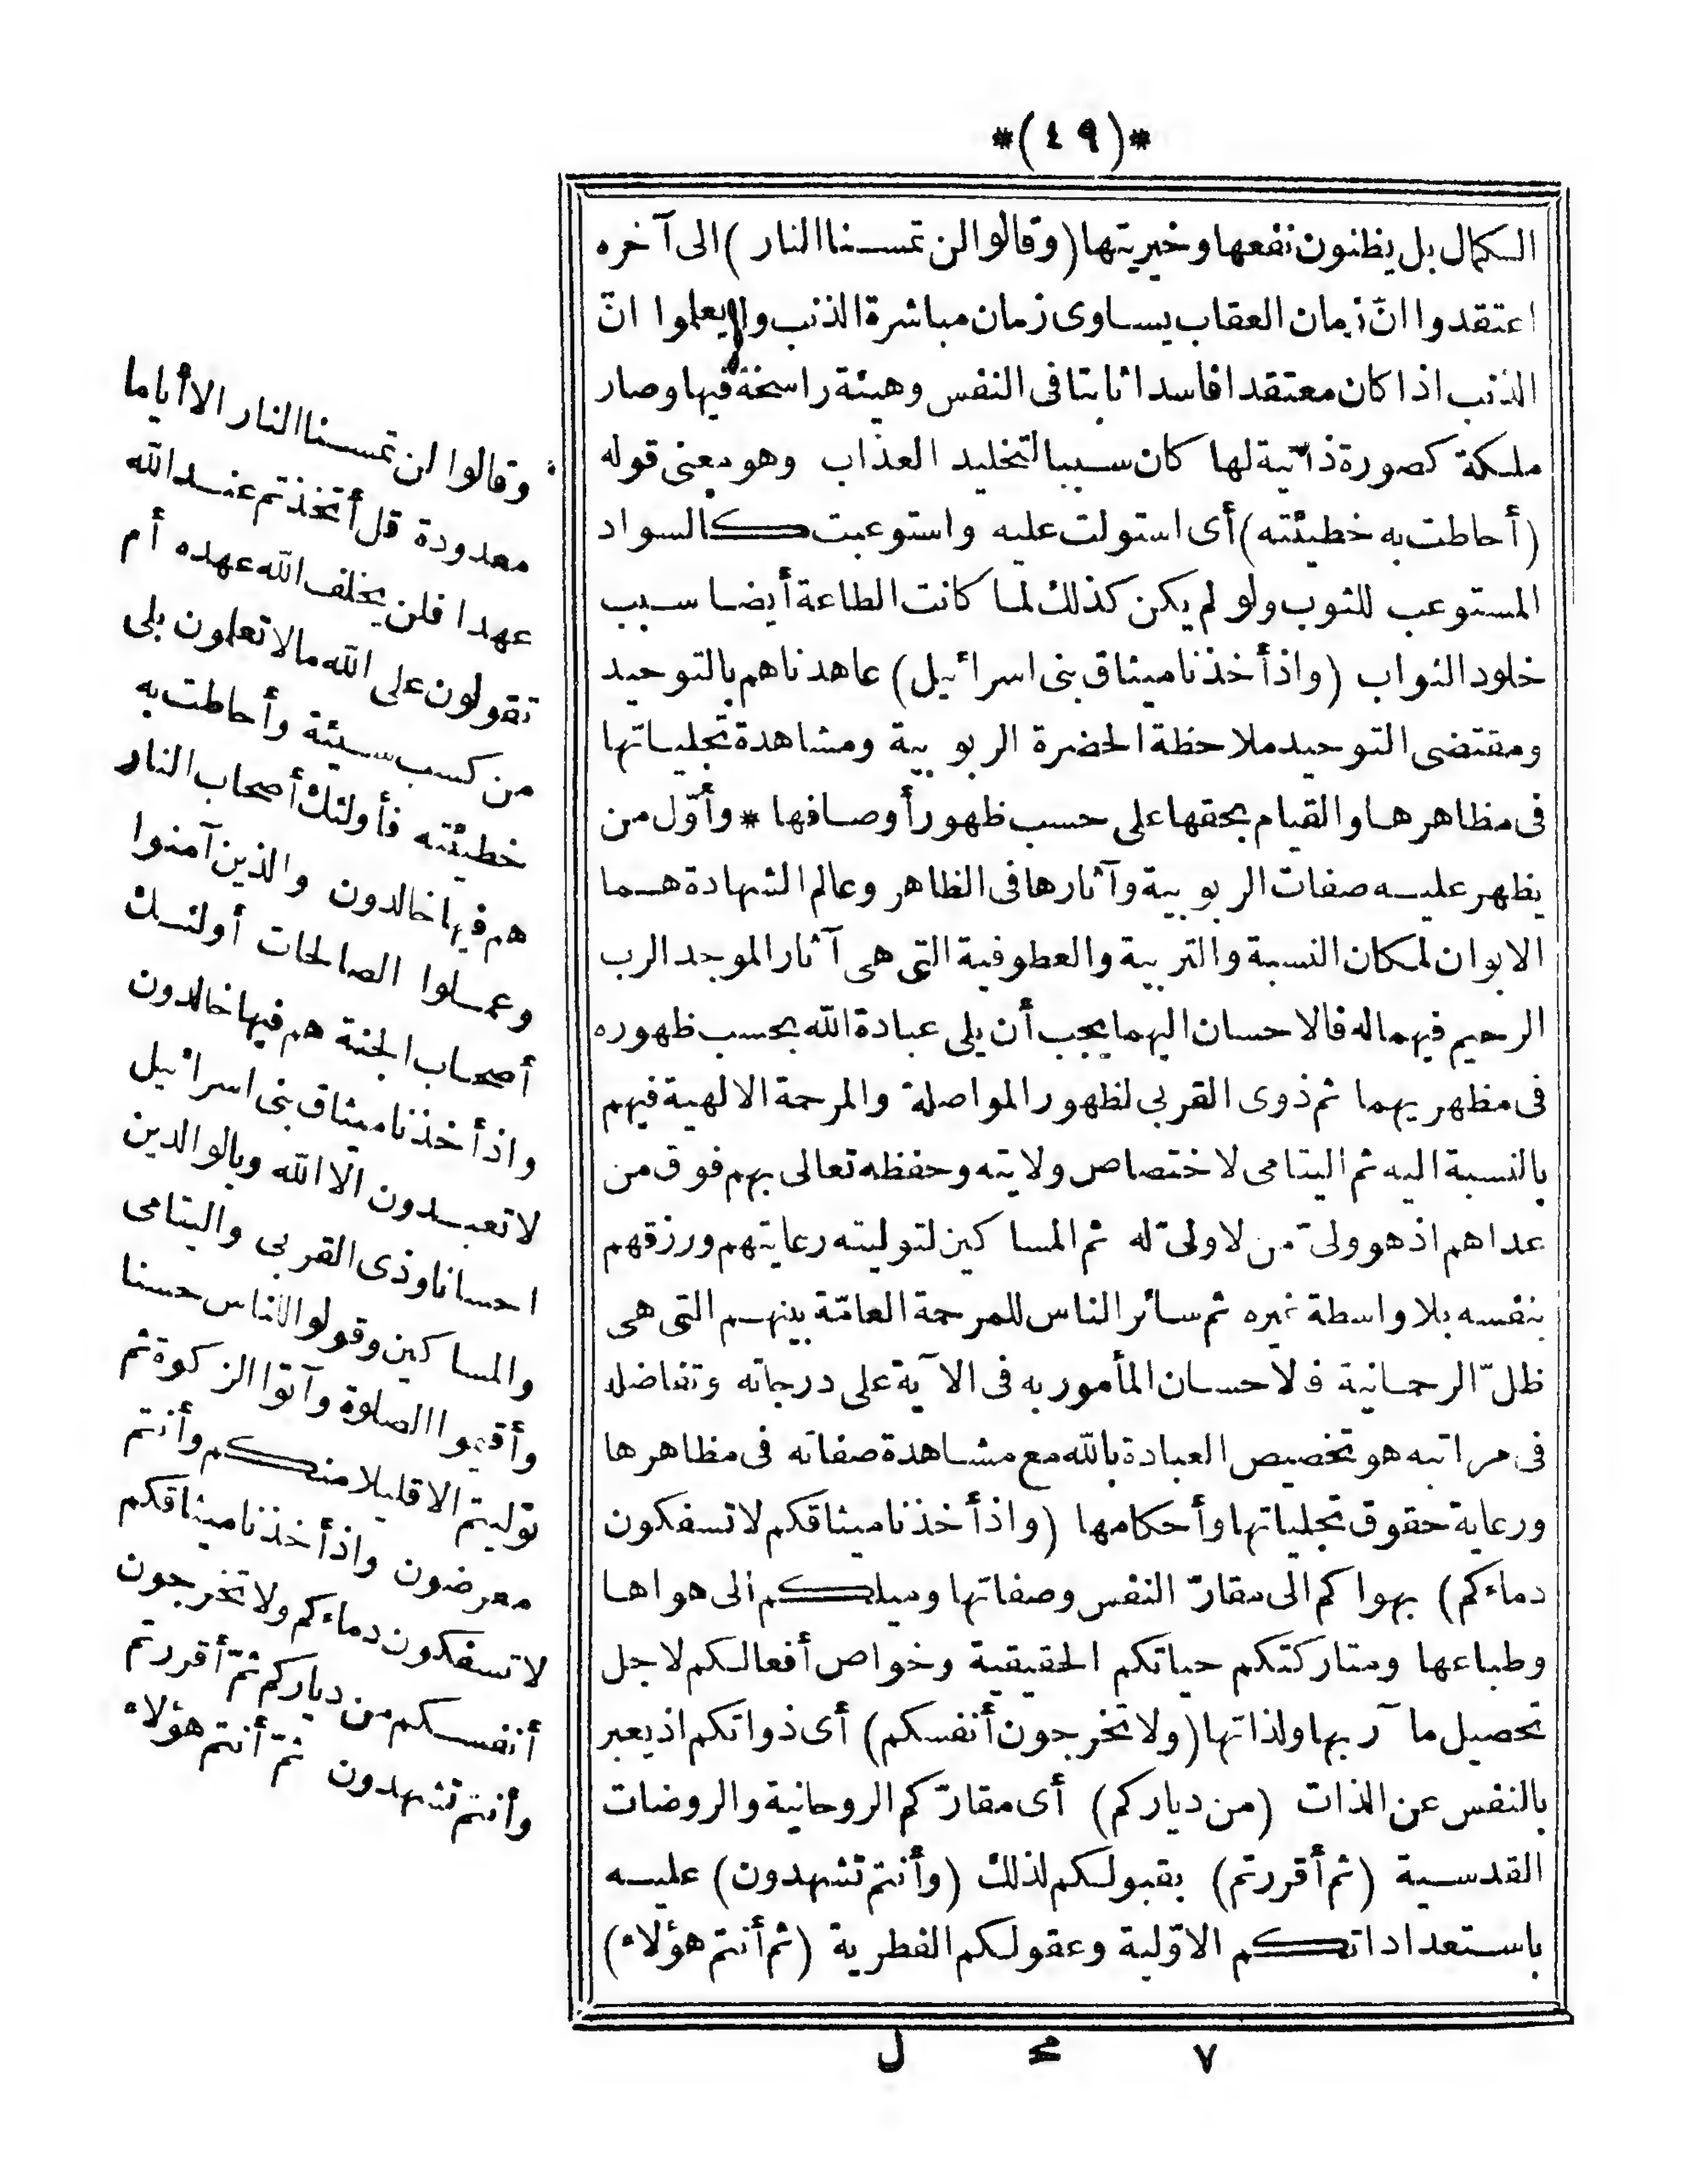 *(٤٩)*
الكمال بل يظنون نفعها وخيريتها (وقالوا لن تمسنا النار) الى آخره
اعتقدوا انّ زمان العقاب يساوى زمان مباشرة الذنب ولم يعلموا انّ
الذنب اذا كان معتقدا فاسدا ثابتا فى النفس وهيئة راسخة فيها وصار
ملكة كصورة ذاتية لها كان سببا لتخليد العذاب وهو معنى قوله
(أحاطت به خطيئته) أى استولت عليه واستوعبت كالسواد
المستوعب للثوب ولو لم يكن كذلك لما كانت الطاعة أيضا سبب
خلود الثواب (واذ أخذنا ميثاق بنى اسرائيل) عاهدناهم بالتوحيد
ومقتضى التوحيد ملاحظة الحضرة الربوبية ومشاهدة تجلياتها
فى مظاهرها والقيام بحقها على حسب ظهور أوصافها * وأوّل من
يظهر عليه صفات الربوبية وآثارها فى الظاهر وعالم الشهادة هما
الابوان لمكان النسبة والتربية والعطوفية التى هى آثار الموجد الرب
الرحيم فيهما له فالاحسان اليهما يجب أن يلى عبادة الله بحسب ظهوره
فى مظهريهما ثم ذوى القربى لظهور المواصلة والمرحمة الالهية فيهم
بالنسبة اليه ثم اليتامى لاختصاص ولايته وحفظه تعالى بهم فوق من
عداهم اذ هو ولىّ من لا ولىّ له ثم المساكين لتوليته رعايتهم ورزقهم
بنفسه بلا واسطة غيره ثم سائر الناس للمرحمة العامّة بينهم التى هى
ظلّ الرحمانية فالاحسان المأمور به فى الآية على درجاته وتفاضله
فى مراتبه هو تخصيص العبادة بالله مع مشاهدة صفاته فى مظاهرها
ورعاية حقوق تجلياتها وأحكامها (واذ أخذنا ميثاقكم لا تسفكون
دماءكم) بهواكم الى مقارّ النفس وصفاتها وميلكم الى هواها
وطباعها ومتاركتكم حياتكم الحقيقية وخواص أفعالكم لاجل
تحصيل مآربها ولذاتها (ولا تخرجون أنفسكم) أى ذواتكم اذ يعبر
بالنفس عن الذات (من دياركم) أى مقارّكم الروحانية والروضات
القدسية (ثم أقررتم) بقبولكم لذلك (وأنتم تشهدون) عليه
باستعداداتكم الاوّلية وعقولكم الفطرية (ثم أنتم هؤلاء)
وقالوا لن تمسنا النار الا أياما
معدودة قل أتخذتم عند الله
عهدا فلن يخلف الله عهده أم
تقولون على الله مالا تعلمون بلى
من كسب سيئة وأحاطت به
خطيئته فأولئك أصحاب النار
هم فيها خالدون والذين آمنوا
وعملوا الصالحات أولئك
أصحاب الجنة هم فيها خالدون
واذ أخذنا ميثاق بنى اسرائيل
لا تعبدون الا الله وبالوالدين
احسانا وذى القربى واليتامى
والمساكين وقولوا للناس حسنا
وأقيموا الصلوة وآتوا الزكوة ثم
توليتم الا قليلا منكم وأنتم
معرضون واذ أخذنا ميثاقكم
لا تسفكون دماءكم ولا تخرجون
أنفسكم من دياركم ثمّ أقررتم
وأنتم تشهدون ثمّ أنتم هؤلاء
٧ مح ل